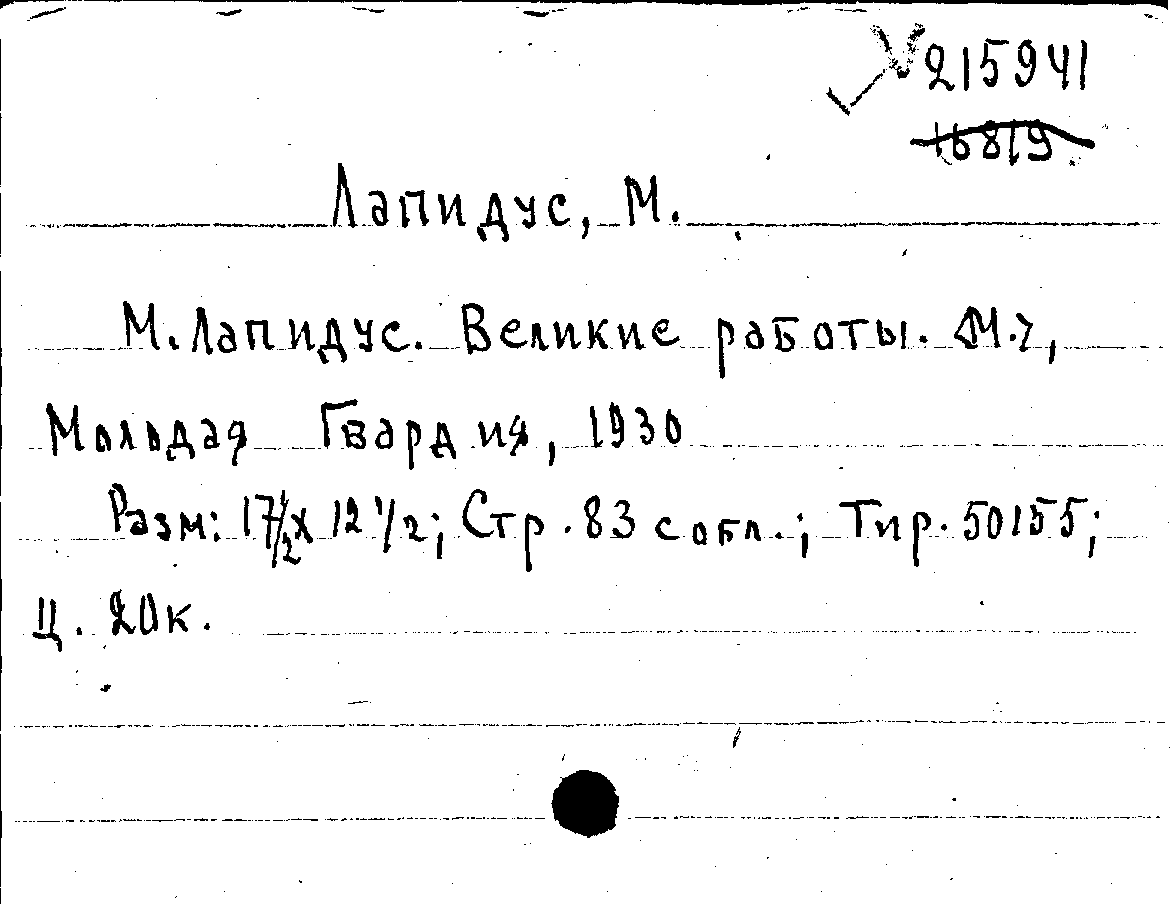 V 215941
16819
Лапидус, М.
М. Лапидус. Великие работы. <М.>,
Молодая Гвардия, 1930
Разм: 17 1/2 х 12 1/2; Стр. 83 с обл.; Тир. 50155;
ц. 20к.